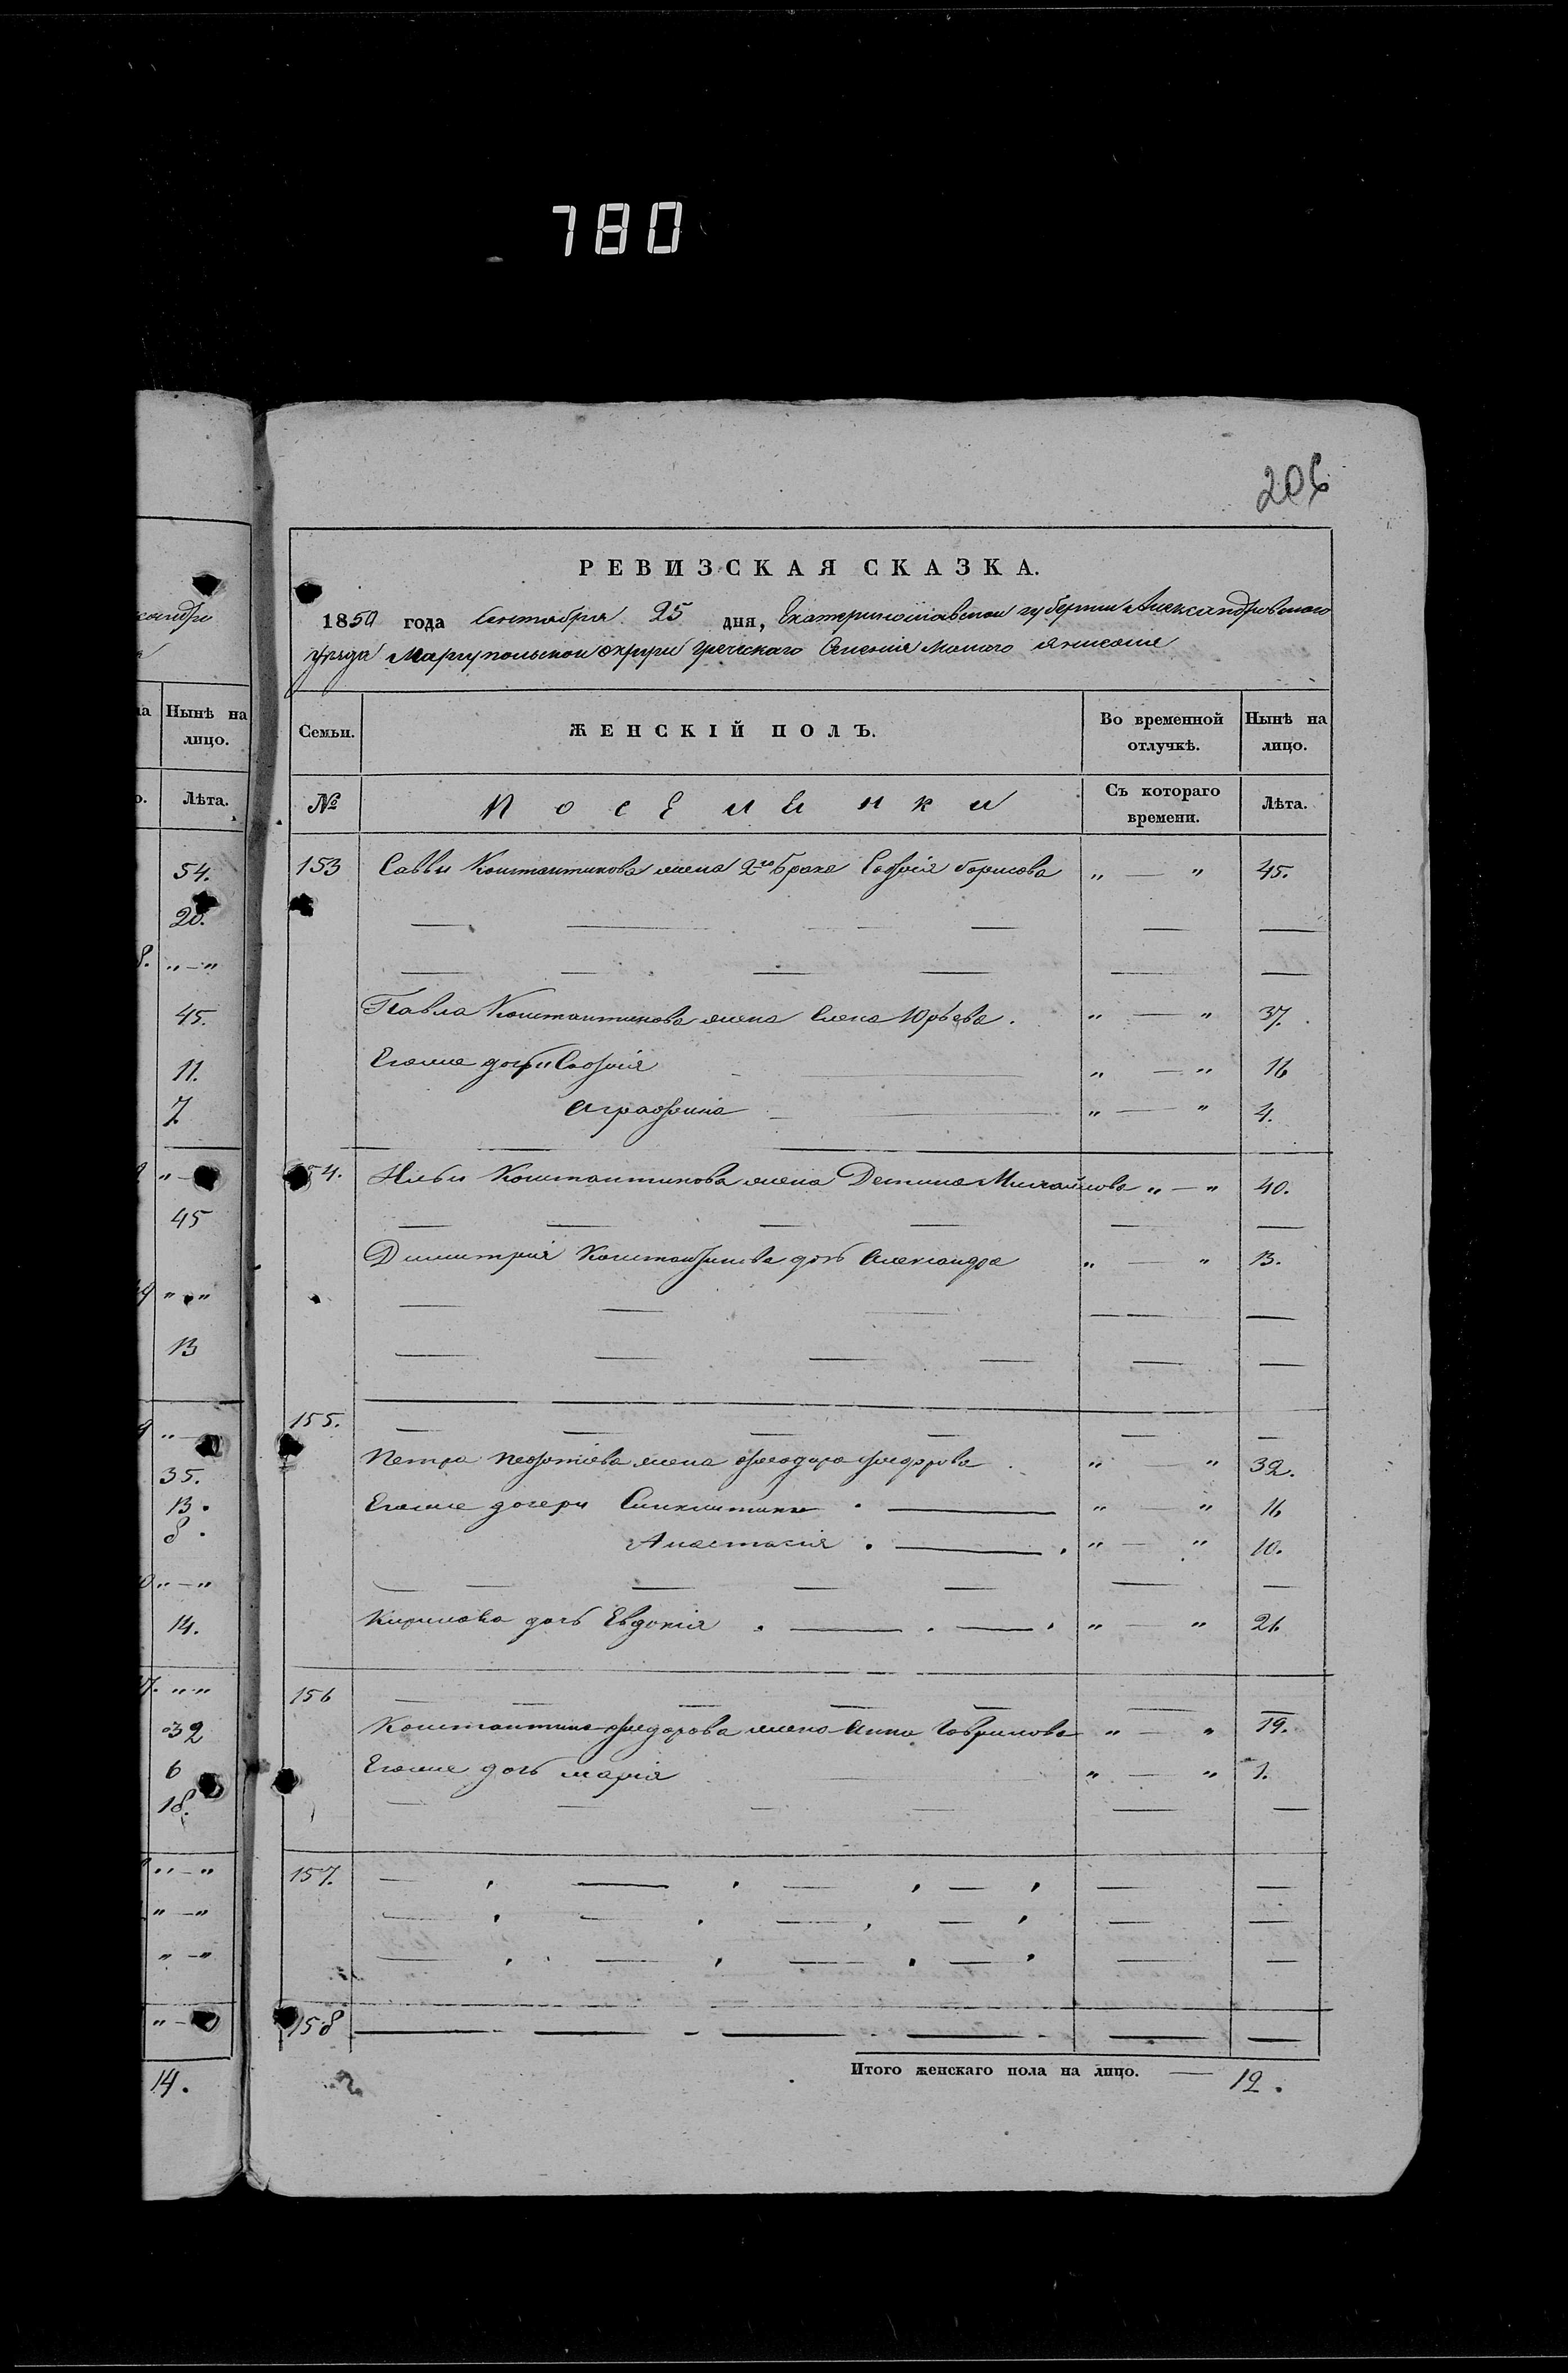 780
206
РЕВИЗСКАЯ СКАЗКА.
1850 года Сентября 25 дня, Екатеринославской губернии Александровского
уѣзда Мариупольскои округи греческаго Селенія Малого Янисоля
Нынѣ на
лицо.
Лѣта.
54.
20.
8. „ — „
45.
11.
7
45
„ „
13
35.
13.
8.
„ — „
14.
„ „
32
6
18.
„ — „
„ — „
„ — „
14.
Семьи. ЖЕНСКІЙ ПОЛЪ. Во временной отлучкѣ. Нынѣ на лицо.
№ Поселянки Съ котораго времени. Лѣта.
153 Саввы Константинова жена 2го брака Софія Борисова „ — „ 45.
Павла Константинова жена Елена Юрьева. „ — „ 37.
Егоже дочьри Софія „ — „ 16
Аграфина „ — „ 4.
54. Ильи Константинова жена Деспина Михайлова „ — „ 40.
Димитрія Константинова дочь Александра „ — „ 13.
155.
Петра жена Феодора Федорова „ — „ 32.
Егоже дочери Синклитикия „ — „ 16
Анастасія „ — „ 10.
Кирилова дочь Евдокія „ — „ 21
156
Константина Федорова жена Анна Гаврилова „ — „ 19.
Егоже дочь Марія „ — „ 1.
157.
158
Итого женскаго пола на лицо. — 12.